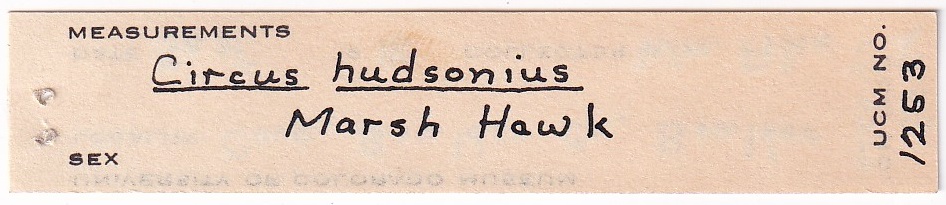 MEASUREMENTS
Circus hudsonius
Marsh Hawk
SEX
UCM NO.
1253